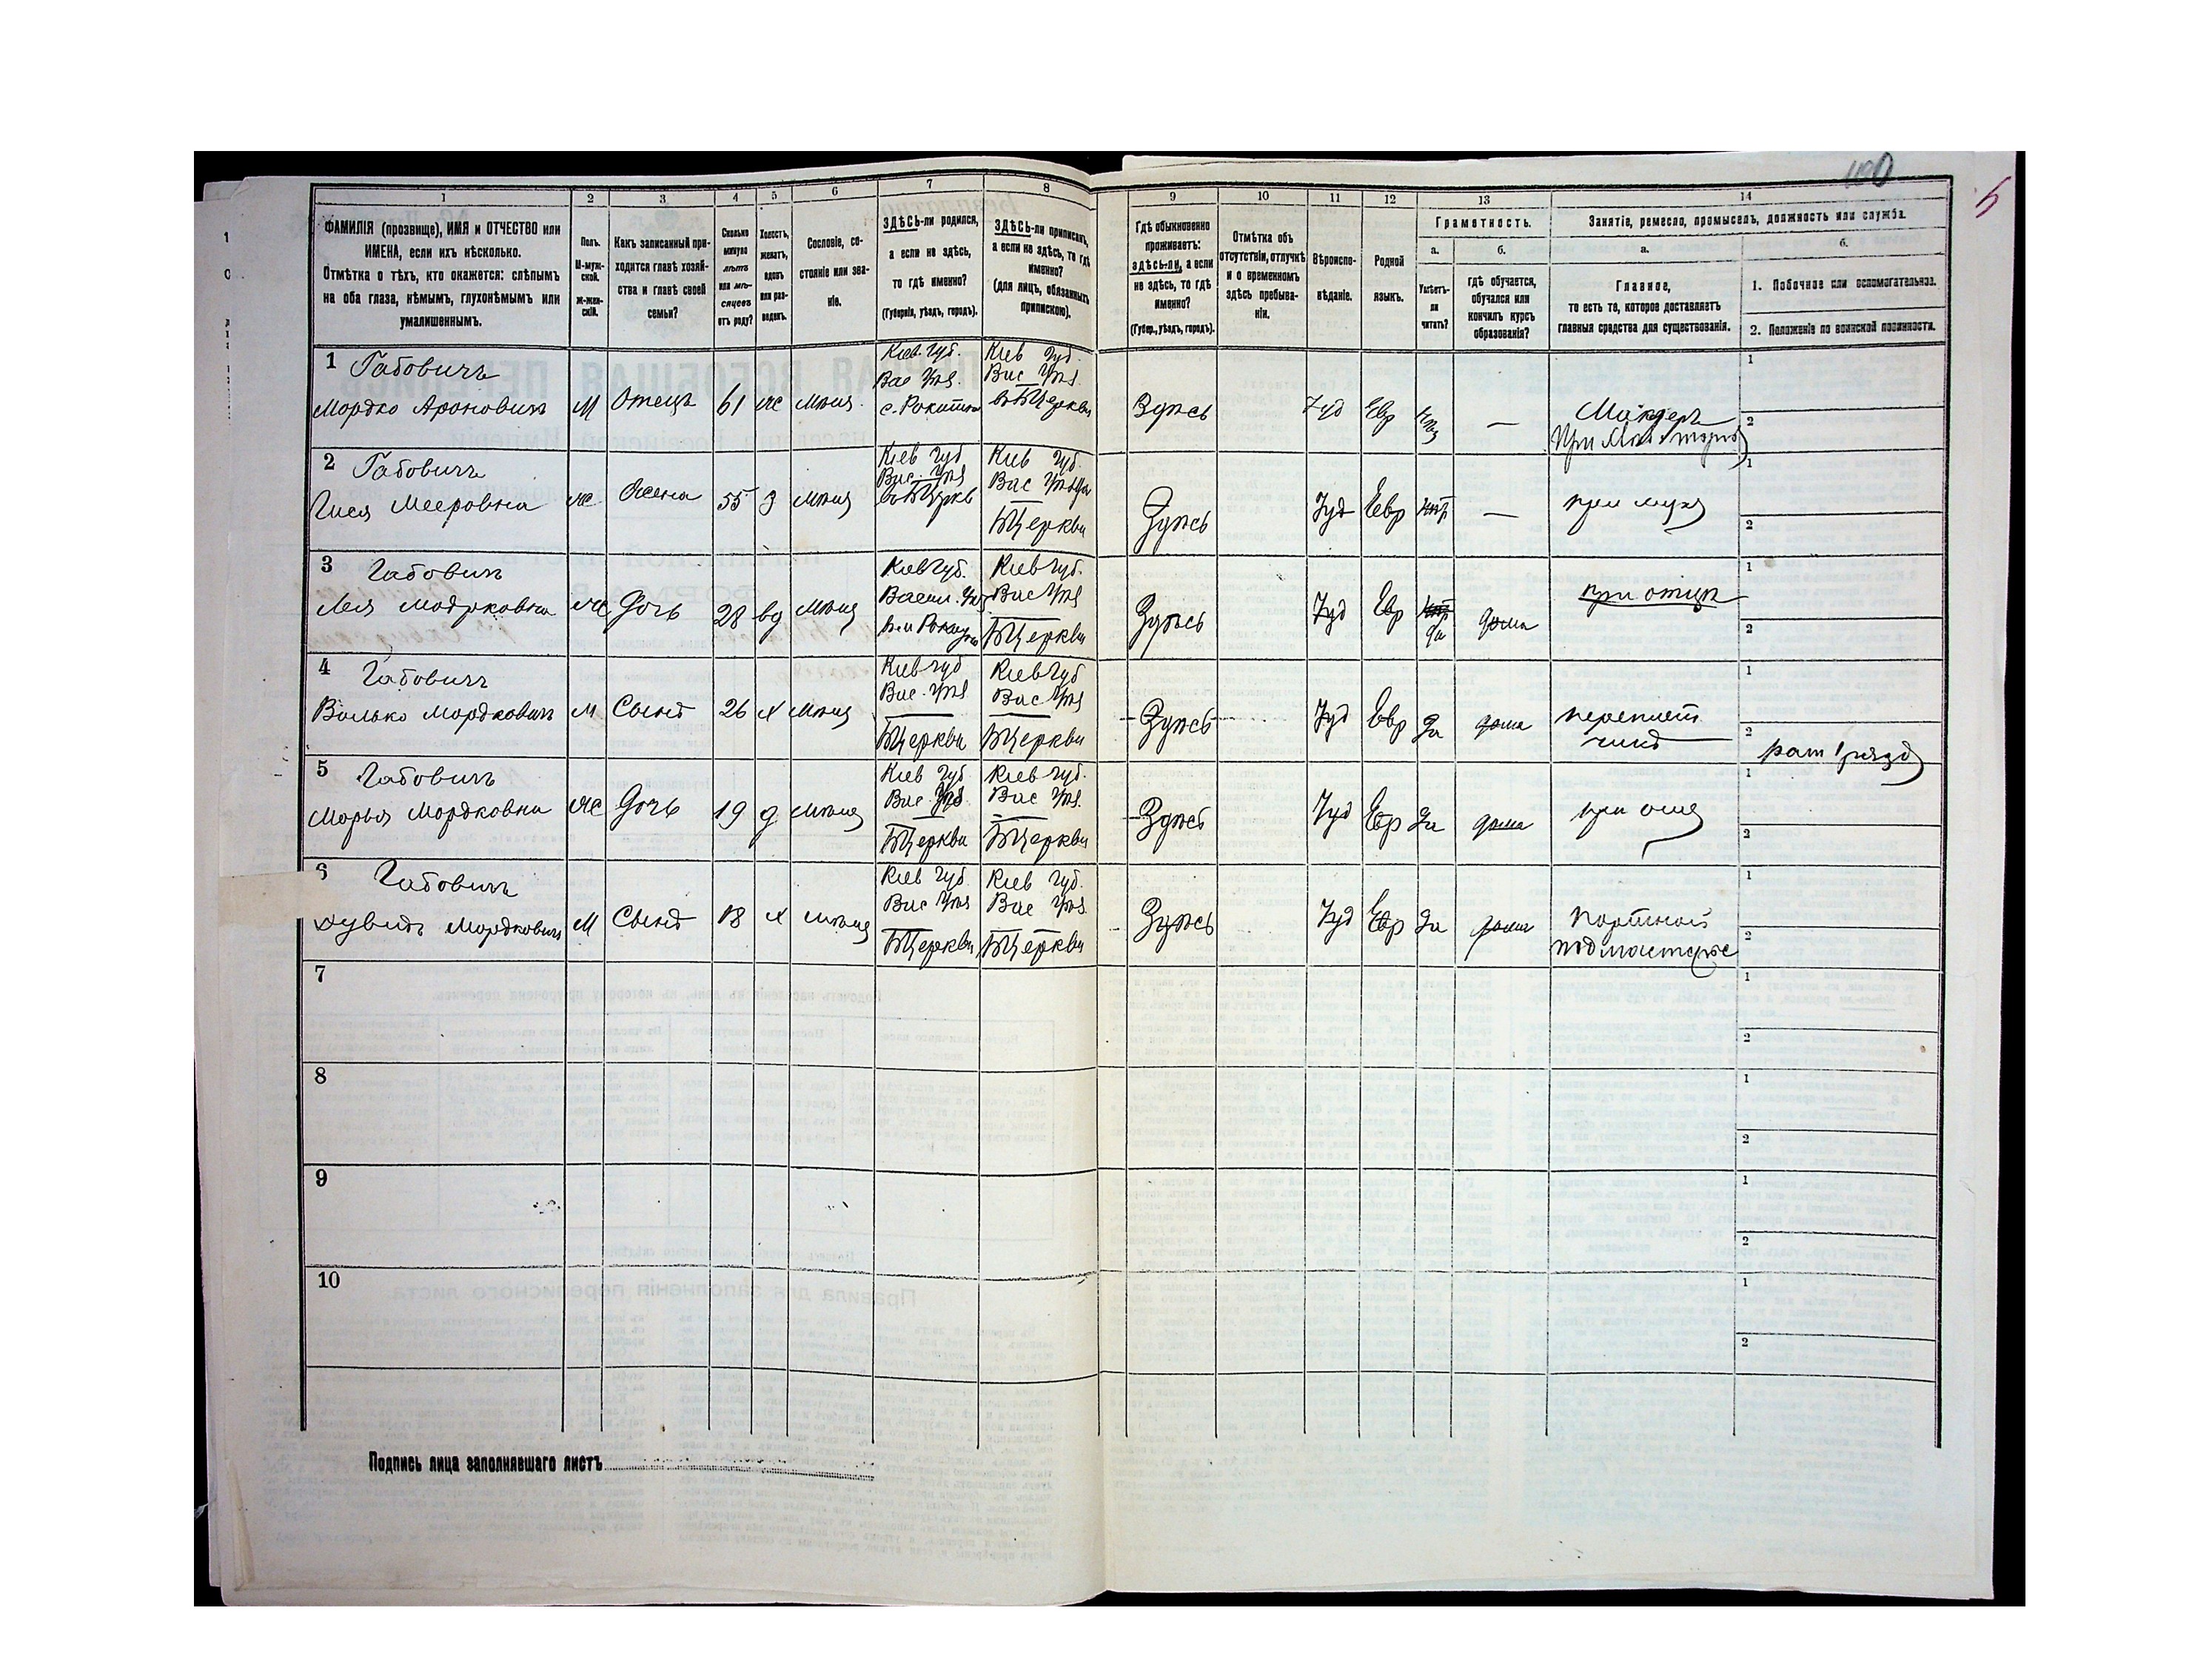 100
5
1
2
3
4
5
6
7
8
9
10
11
12
13
14
ФАМИЛІЯ (прозвище), ИМЯ и ОТЧЕСТВО или
ИМЕНА, если ихъ нѣсколько.
Отмѣтка о тѣхъ, кто окажется: слѣпымъ
на оба глаза, нѣмымъ, глухонѣмымъ или
умалишеннымъ.
Полъ.
М-муж-
ской.
Ж-жен-
скій.
Какъ записанный при-
ходится главѣ хозяй-
ства и главѣ своей
семьи?
Сколько
минуло
лѣтъ
или мѣ-
сяцевъ
отъ роду?
Холостъ,
женатъ,
вдовъ
или раз-
веденъ.
Сословіе, со-
стояніе или зва-
ніе.
ЗДѢСЬ-ли родился,
а если не здѣсь,
то гдѣ именно?
(Губернія, уѣздъ, городъ).
ЗДѢСЬ-ли приписанъ,
а если не здѣсь, то гдѣ
именно?
(для лицъ, обязанныхъ
припискою).
Гдѣ обыкновенно
проживаетъ:
здѣсь-ли, а если
не здѣсь, то гдѣ
именно?
(Губер., уѣздъ, городъ).
Отмѣтка объ
отсутствіи, отлучкѣ
и о временномъ
здѣсь пребыва-
ніи.
Вѣроиспо-
вѣданіе.
Родной
языкъ.
Грамотность.
а.
Умѣетъ-
ли
читать?
б.
гдѣ обучается,
обучался или
кончилъ курсъ
образованія?
Занятіе, ремесло, промыселъ, должность или служба.
а.
Главное,
то есть то, которое доставляетъ
главныя средства для существованія.
б.
1. Побочное или вспомогательное.
2. Положеніе по воинской повинности.
1 Габовичъ
Мордко Ароновичъ М Отецъ 61 ж мѣщ.
Кіев. Губ.
Вас Уѣз.
Кіев Губ.
Вас Уѣз.
Здѣсь Іуд Евр —
1
2
2 Габовичъ
Мееровна ж Жена 55 з мѣщ
Кіев Губ
Вас. Уѣз
Кіев Губ.
Вас Уѣзда
БЦеркви
Здѣсь Іуд Евр — при мужѣ
1
2
3 Габовичъ
Лея Мордковна ж Дочь 28 вд мѣщ
Кіев Губ.
Васил. Уѣз
Кіев Губ.
Вас Уѣз
БЦеркви
Здѣсь Іуд Евр да дома при отцѣ
1
2
4 Габовичъ
Волько Мордковичъ М Сынъ 26 х мѣщ
Кіев Губ
Вас. Уѣз
БЦеркви
Кіев Губ
Вас Уѣз
БЦеркви
Здѣсь Іуд Евр да дома переплет
чикъ
1
2
рат 1 разр
5 Габовичъ
Марья Мордковна ж Дочь 19 д мѣщ
Кіев Губ.
Вас. Уѣз.
БЦеркви
Кіев Губ.
Вас Уѣз.
БЦеркви
Здѣсь Іуд Евр да дома при отцѣ
1
2
6 Габовичъ
Дувидъ Мордковичъ М Сынъ 18 х мѣщ
Кіев Губ.
Вас Уѣз
БЦеркви
Кіев Губ.
Вас Уѣз.
БЦеркви
Здѣсь Іуд Евр да дома Портной
подмастерье
1
2
7
1
2
8
1
2
9
1
2
10
1
2
Подпись лица заполнявшаго листъ